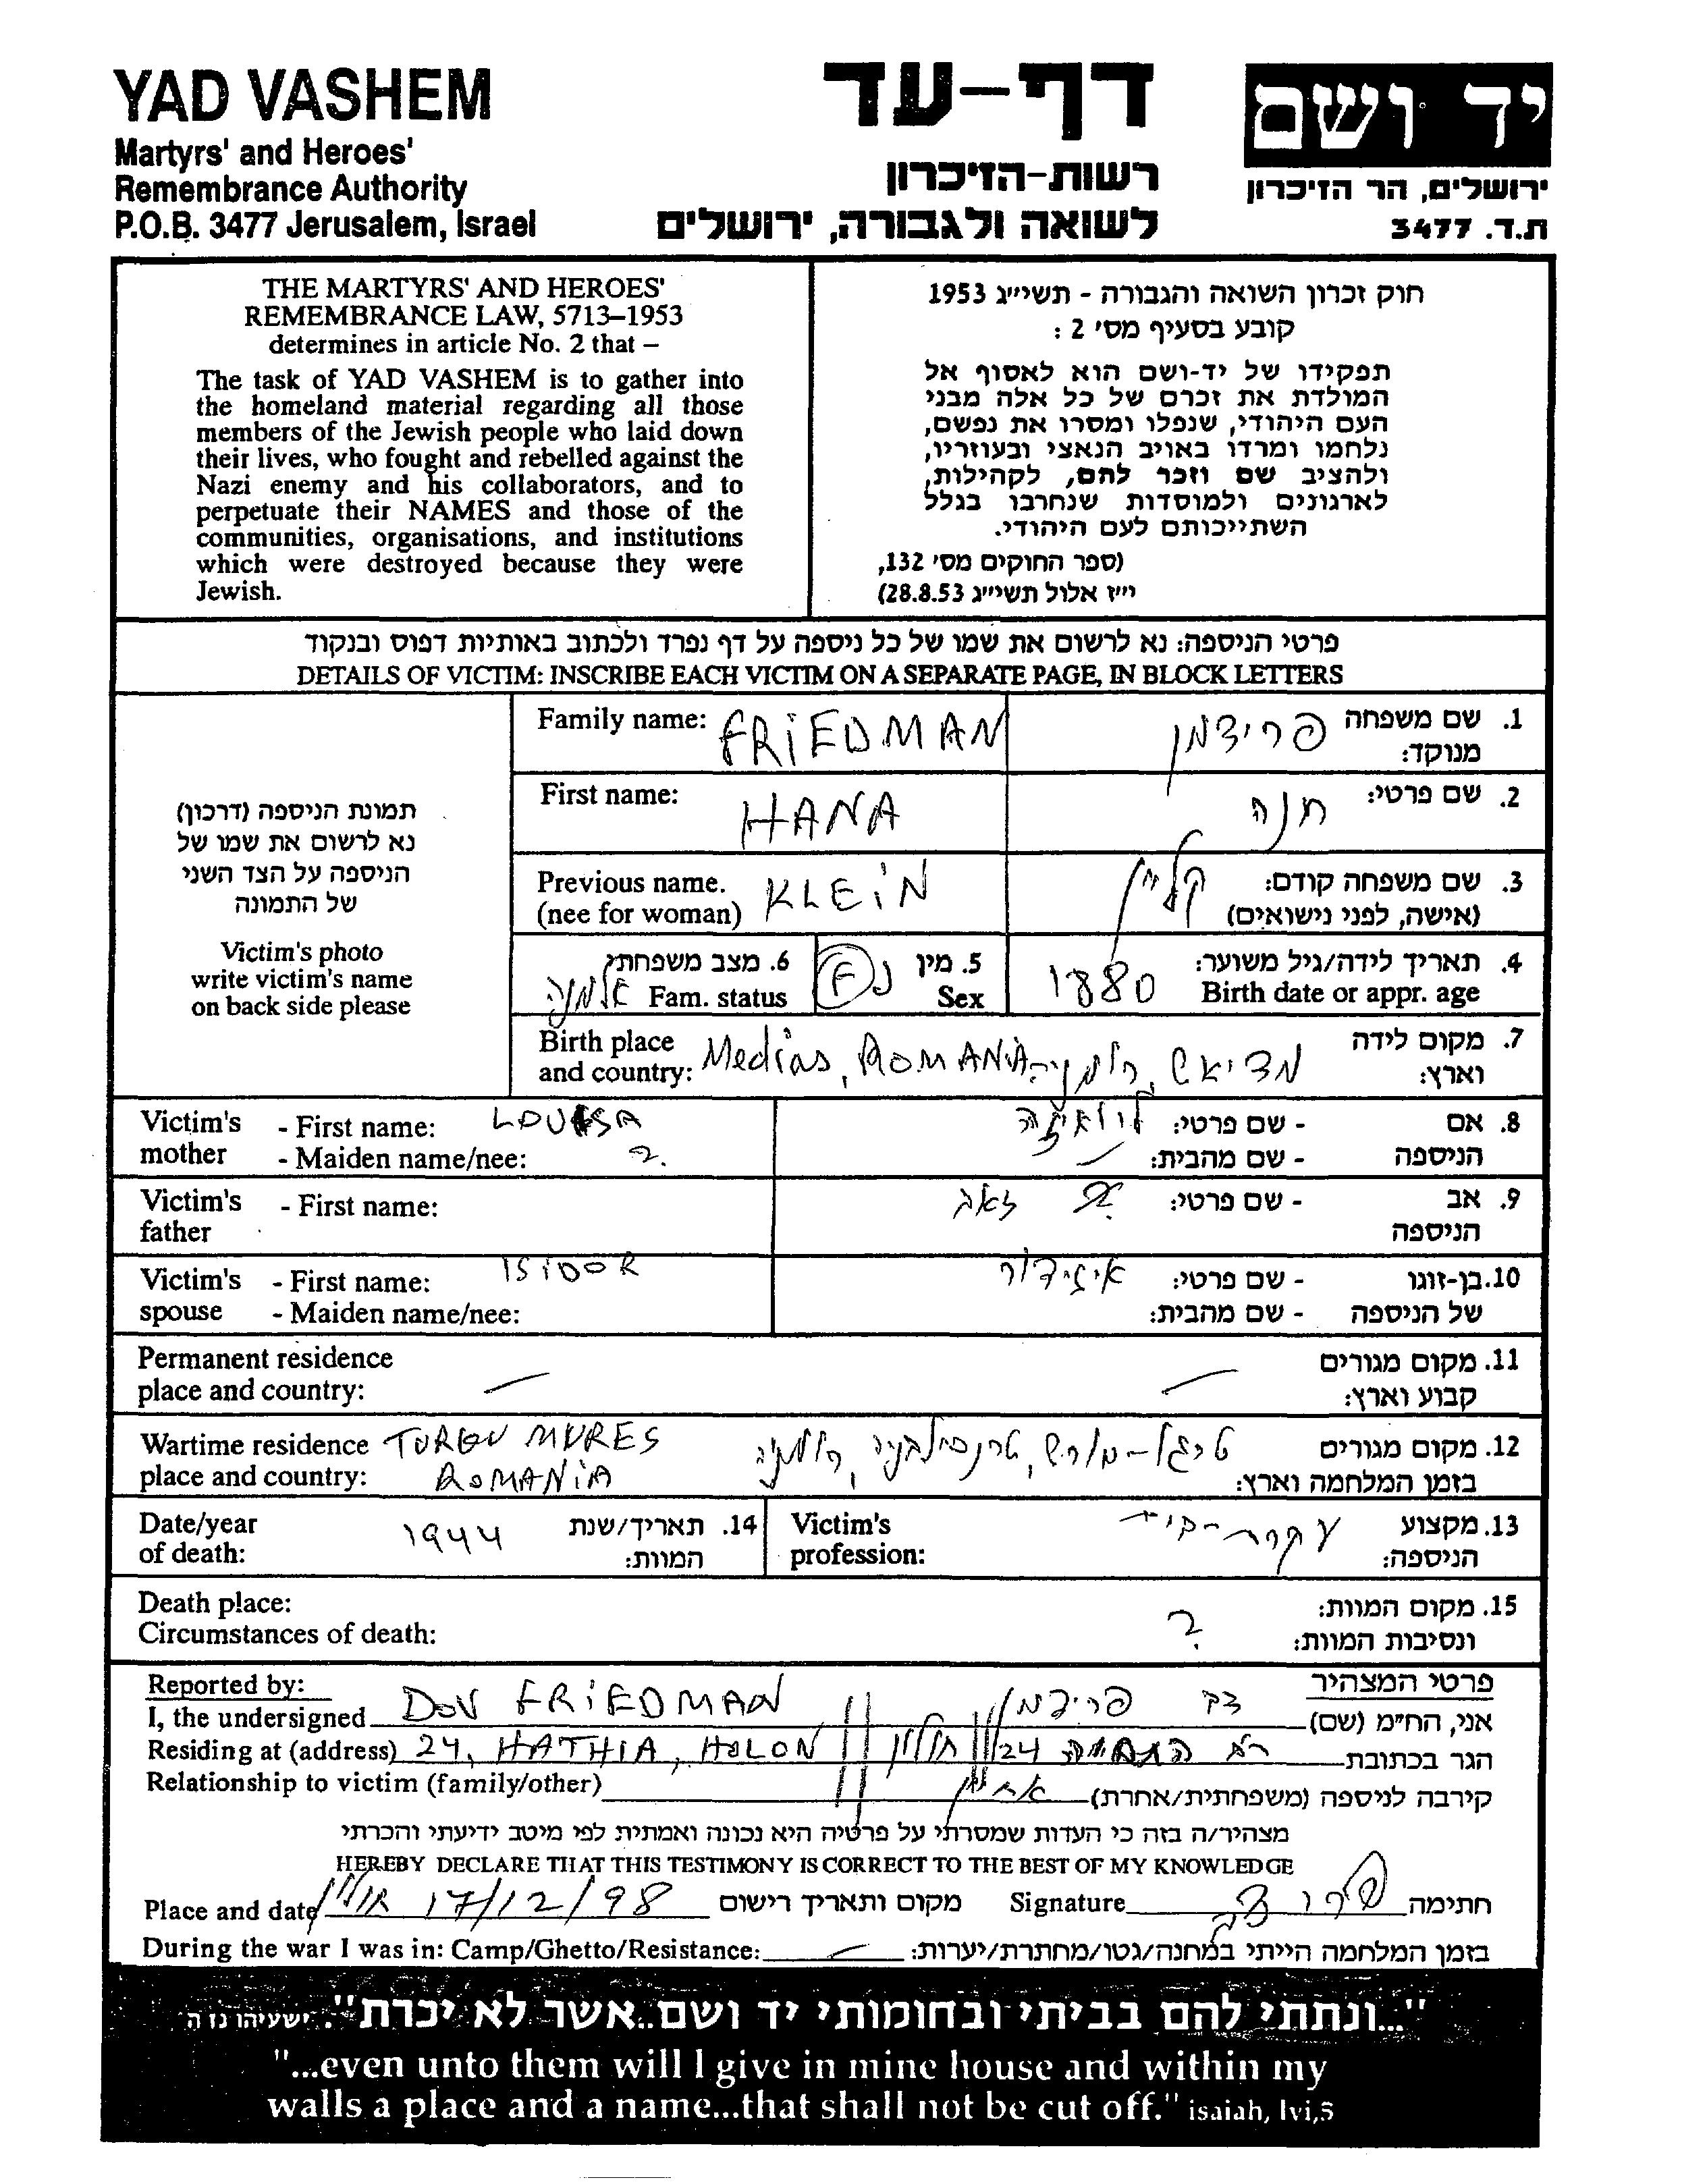 YAD VASHEM
Martyrs' and Heroes'
Remembrance Authority
P.O.B. 3477 Jerusalem, Israel
דף-עד
רשות-הזיכרון
לשואה ולגבורה, ירושלים
יד ושם
ירושלים, הר הזיכרון
ת.ד. 3477
THE MARTYRS' AND HEROES'
REMEMBRANCE LAW, 5713–1953
determines in article No. 2 that –
The task of YAD VASHEM is to gather into
the homeland material regarding all those
members of the Jewish people who laid down
their lives, who fought and rebelled against the
Nazi enemy and his collaborators, and to
perpetuate their NAMES and those of the
communities, organisations, and institutions
which were destroyed because they were
Jewish.
חוק זכרון השואה והגבורה - תשי״ג 1953
קובע בסעיף מס׳ 2 :
תפקידו של יד-ושם הוא לאסוף אל
המולדת את זכרם של כל אלה מבני
העם היהודי, שנפלו ומסרו את נפשם,
נלחמו ומרדו באויב הנאצי ובעוזריו,
ולהציב שם וזכר להם, לקהילות,
לארגונים ולמוסדות שנחרבו בגלל
השתייכותם לעם היהודי.
(ספר החוקים מס׳ 132,
י״ז אלול תשי״ג 28.8.53)
פרטי הניספה: נא לרשום את שמו של כל ניספה על דף נפרד ולכתוב באותיות דפוס ובנקוד
DETAILS OF VICTIM: INSCRIBE EACH VICTIM ON A SEPARATE PAGE, IN BLOCK LETTERS
תמונת הניספה (דרכון)
נא לרשום את שמו של
הניספה על הצד השני
של התמונה
Victim's photo
write victim's name
on back side please
Family name: FRIEDMAN פרידמן 1. שם משפחה
מנוקד:
First name: HANA חנה 2. שם פרטי:
Previous name. KLEIN קליין 3. שם משפחה קודם:
(nee for woman) (אישה, לפני נישואים)
6. מצב משפחתי 5. מין 4. תאריך לידה/גיל משוער:
אלמנה Fam. status F נ Sex 1880 Birth date or appr. age
Birth place Medias, ROMANIA מדיאש, רומניה 7. מקום לידה
and country: וארץ:
Victim's - First name: LOUISA לואיזה - שם פרטי: 8. אם
mother - Maiden name/nee: ?. - שם מהבית: הניספה
Victim's - First name: זאב - שם פרטי: 9. אב
father הניספה
Victim's - First name: ISIDOR איזידור - שם פרטי: 10. בן-זוגו
spouse - Maiden name/nee: - שם מהבית: של הניספה
Permanent residence 11. מקום מגורים
place and country: קבוע וארץ:
Wartime residence TURGU MURES טירגו-מורש, טרנסילבניה, רומניה 12. מקום מגורים
place and country: ROMANIA בזמן המלחמה וארץ:
Date/year 1944 14. תאריך/שנת Victim's עקרת-בית 13. מקצוע
of death: המוות: profession: הניספה:
Death place: 15. מקום המוות:
Circumstances of death: ? ונסיבות המוות:
Reported by: פרטי המצהיר
I, the undersigned DOV FRIEDMAN דב פרידמן אני, הח״מ (שם)
Residing at (address) 24, HATHIA, HOLON רח׳ התחיה 24 חולון הגר בכתובת
Relationship to victim (family/other) קירבה לניספה (משפחתית/אחרת)
מצהיר/ה בזה כי העדות שמסרתי על פרטיה היא נכונה ואמתית לפי מיטב ידיעתי והכרתי
HEREBY DECLARE THAT THIS TESTIMONY IS CORRECT TO THE BEST OF MY KNOWLEDGE
Place and date 17/12/98 מקום ותאריך רישום Signature חתימה
During the war I was in: Camp/Ghetto/Resistance: בזמן המלחמה הייתי במחנה/גטו/מחתרת/יערות:
"...ונתתי להם בביתי ובחומותי יד ושם...אשר לא יכרת". ישעיהו נו ה
"...even unto them will I give in mine house and within my
walls a place and a name...that shall not be cut off." isaiah, lvi,5